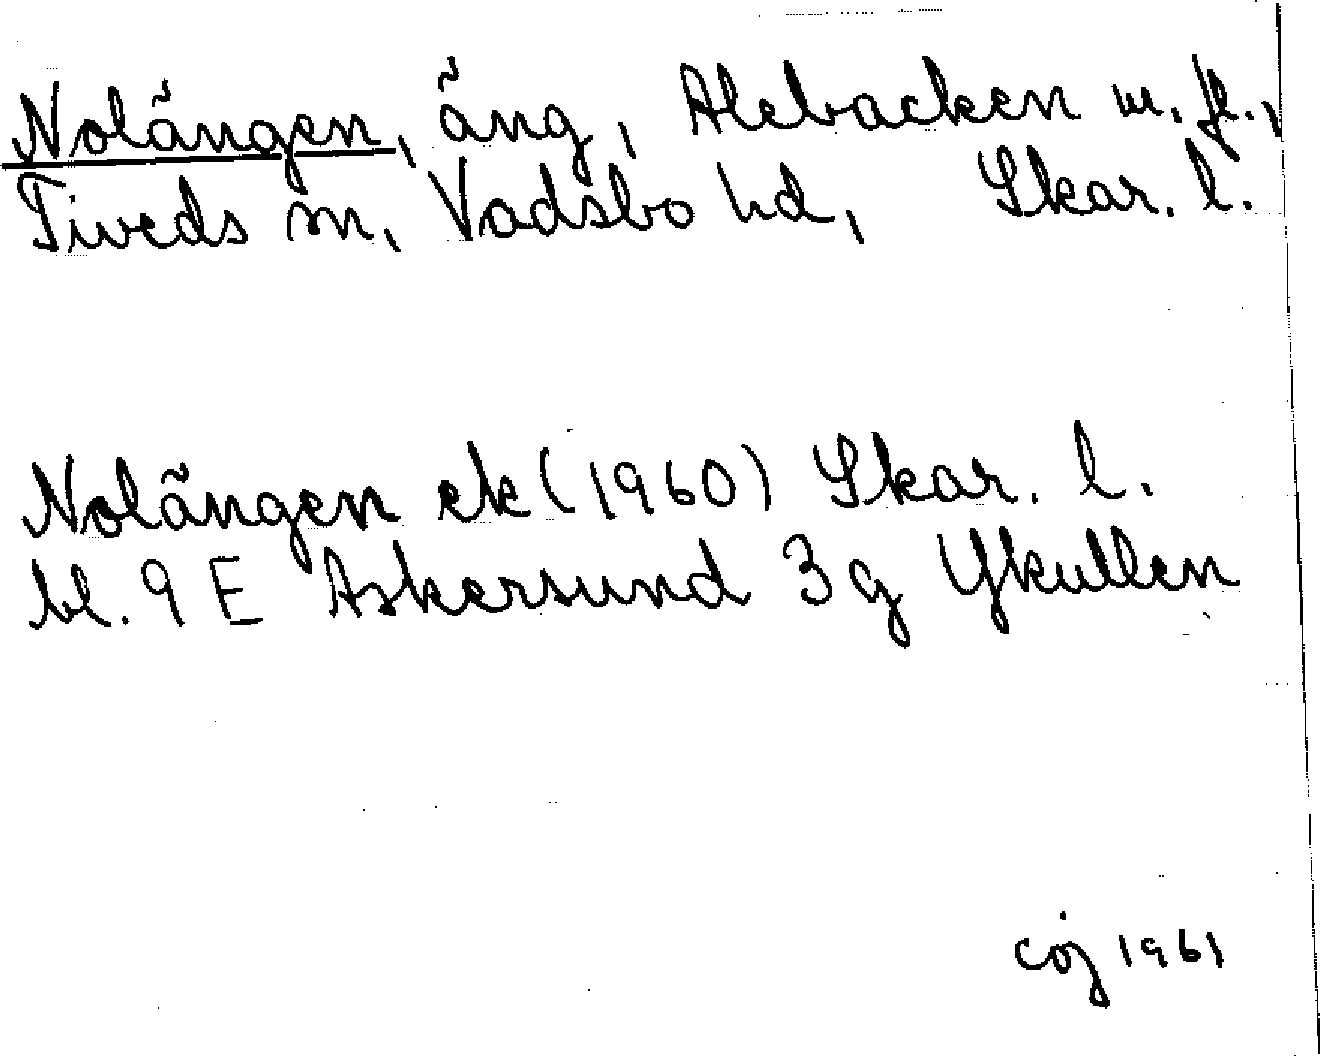 Nolängen, äng, Alebacken m. fl.,
Tiveds sn, Vadsbo hd, Skar. l.
Nolängen ek (1960) Skar. l.
bl. 9 E Askersund 3g Ykullen
coj 1961